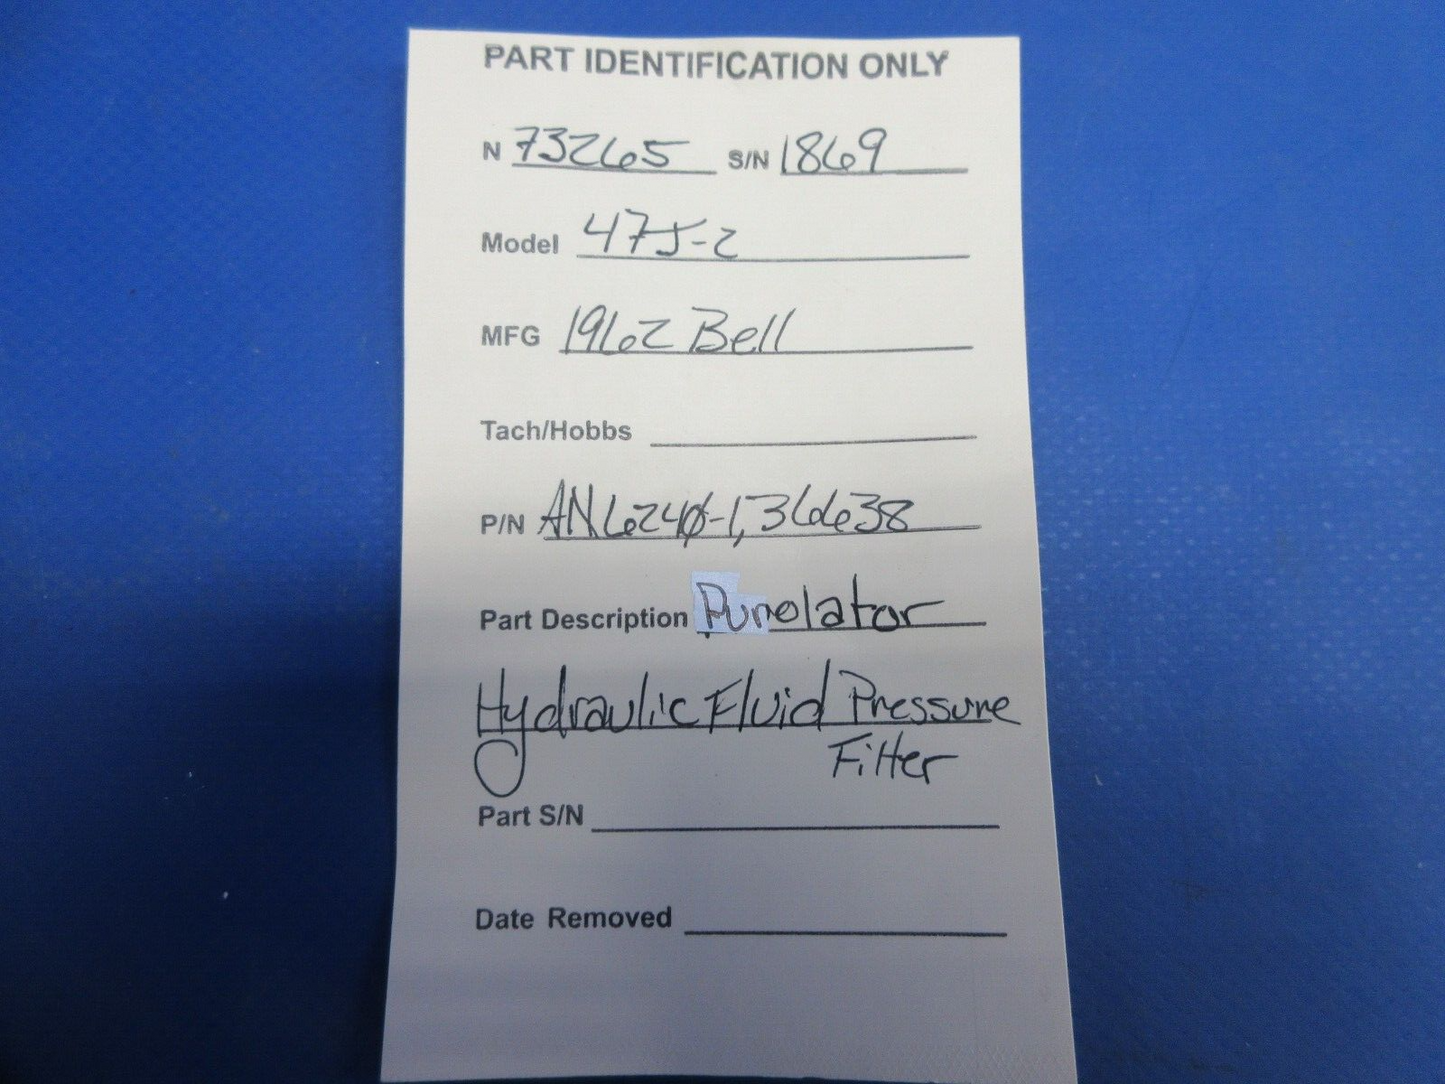 PART IDENTIFICATION ONLY
N 73265 S/N 1869
Model 47J-2
MFG 1962 Bell
Tach/Hobbs
P/N AN6240-1, 36638
Part Description Purolator
Hydraulic Fluid Pressure
Filter
Part S/N
Date Removed